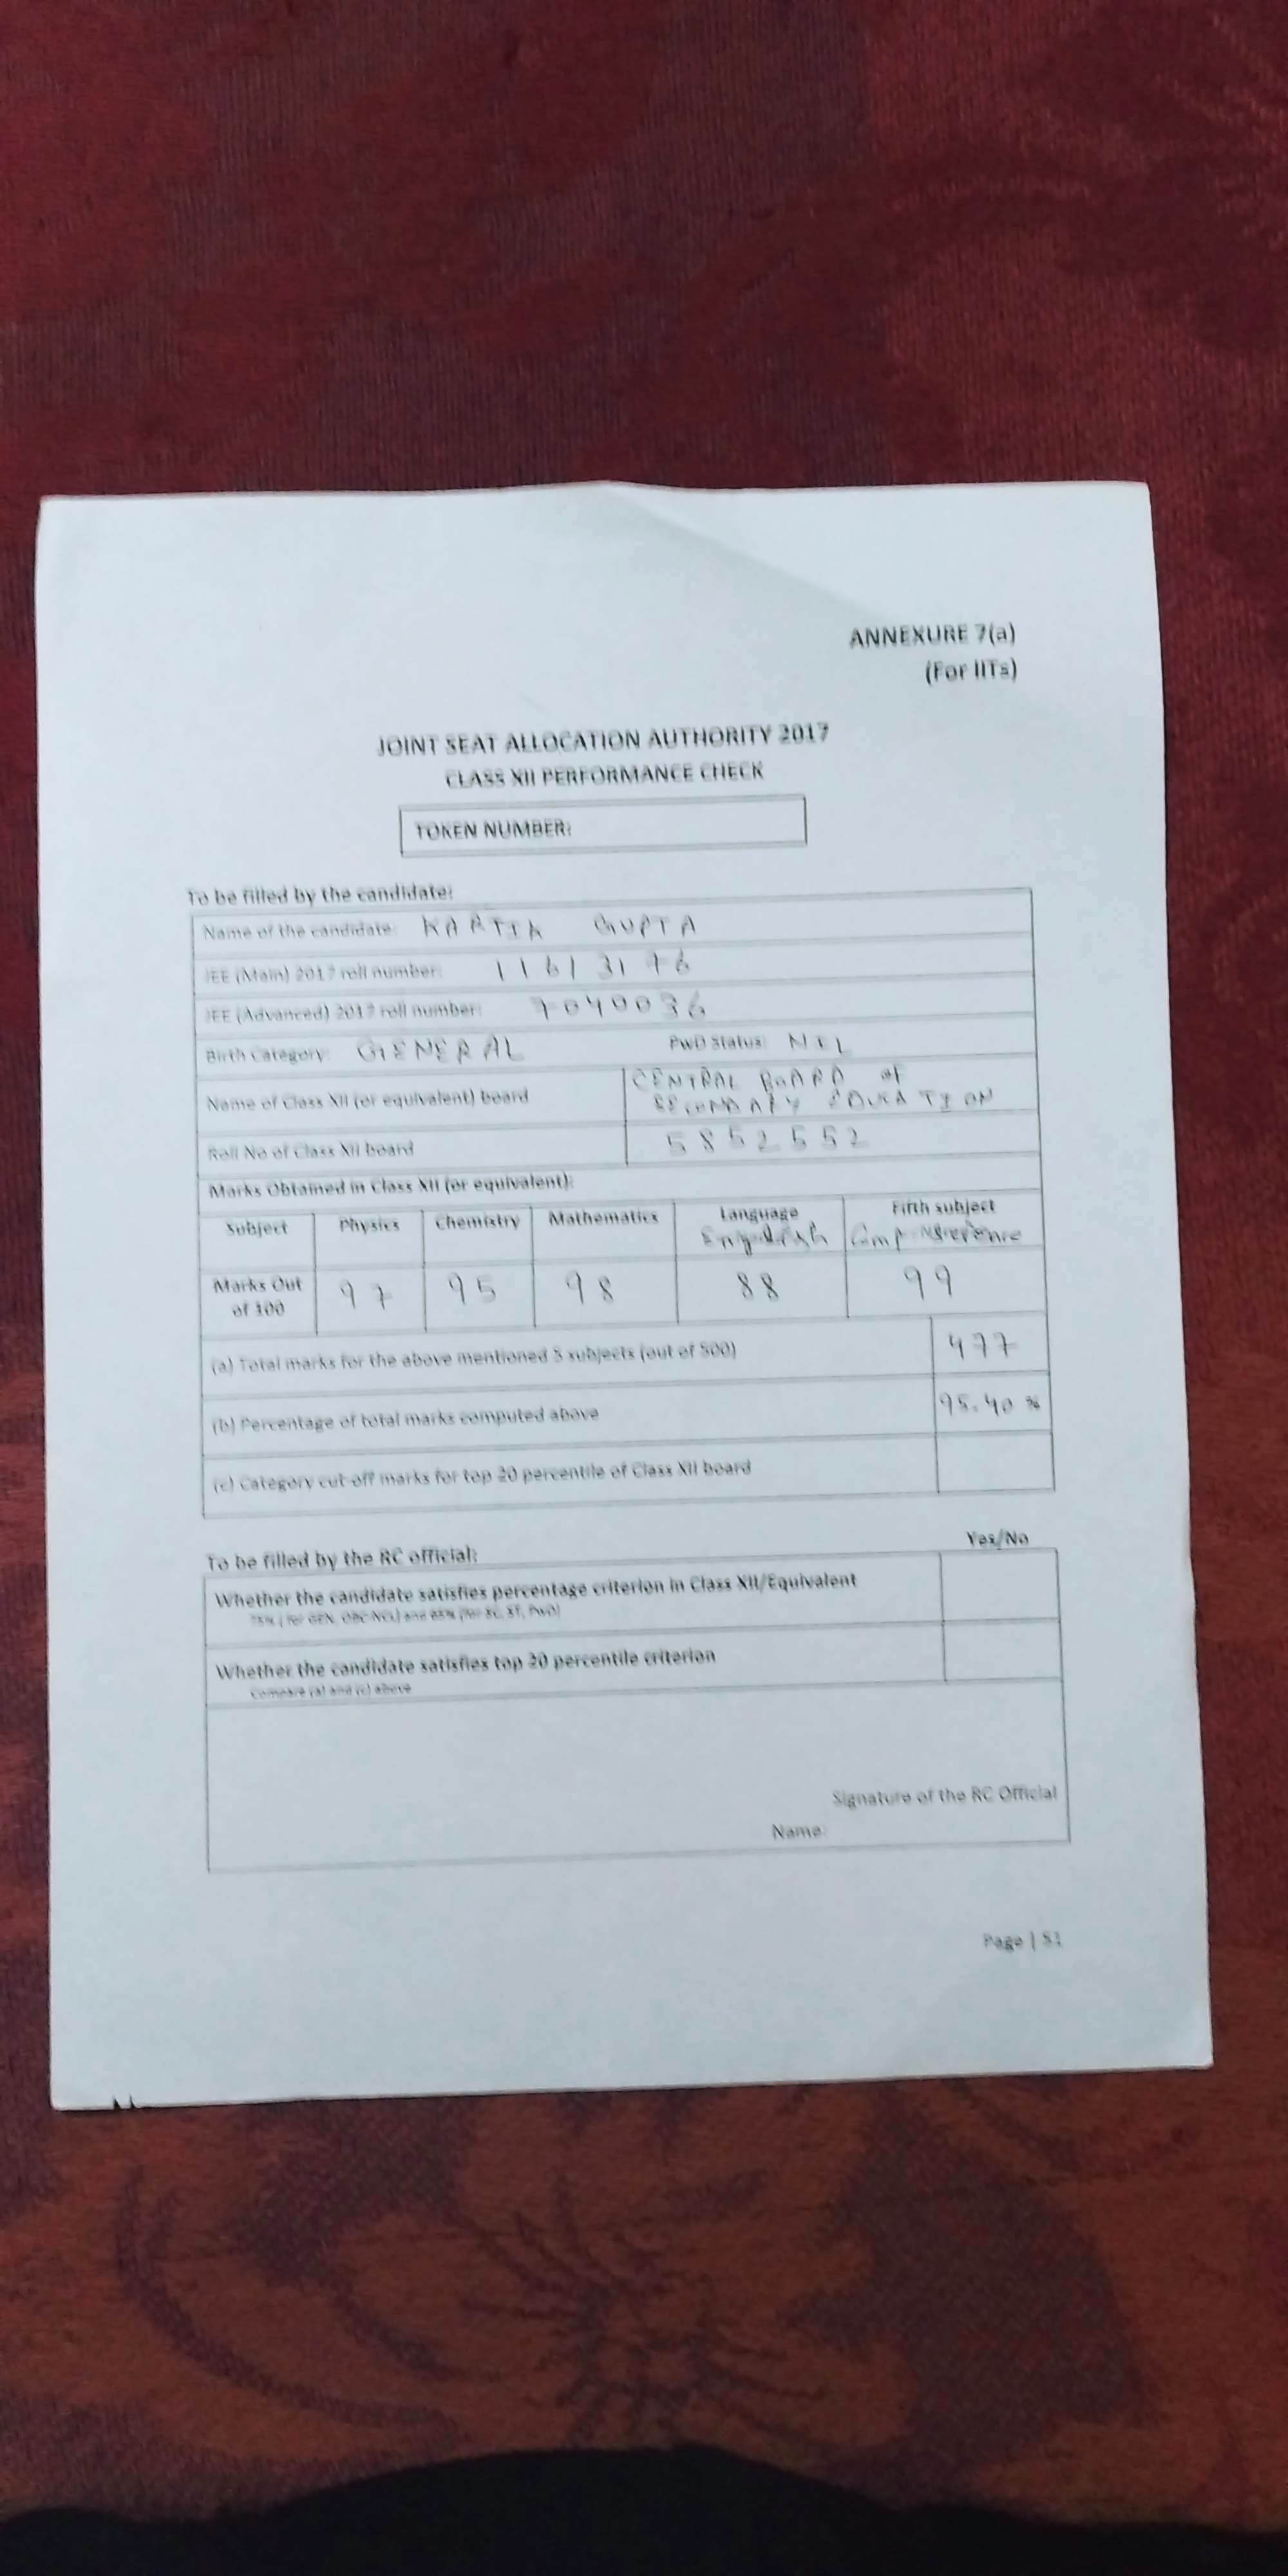 ANNEXURE 7(a)
(For IITs)
JOINT SEAT ALLOCATION AUTHORITY 2017
CLASS XII PERFORMANCE CHECK
TOKEN NUMBER:
To be filled by the candidate:
Name of the candidate: KARTIK GUPTA
JEE (Main) 2017 roll number: 11613176
JEE (Advanced) 2017 roll number: 7040036
Birth Category: GENERAL PwD Status: NIL
Name of Class XII (or equivalent) board CENTRAL BOARD OF
SECONDARY EDUCATION
Roll No of Class XII board 5852552
Marks Obtained in Class XII (or equivalent):
Subject Physics Chemistry Mathematics Language Fifth subject
English Comp. Science
Marks Out of 100 97 95 98 88 99
(a) Total marks for the above mentioned 5 subjects (out of 500) 477
(b) Percentage of total marks computed above 95.40 %
(c) Category cut-off marks for top 20 percentile of Class XII board
Yes/No
To be filled by the RC official:
Whether the candidate satisfies percentage criterion in Class XII/Equivalent
75% ( for GEN, OBC-NCL) and 65% (for SC, ST, PwD)
Whether the candidate satisfies top 20 percentile criterion
Compare (a) and (c) above
Signature of the RC Official
Name:
Page | 51